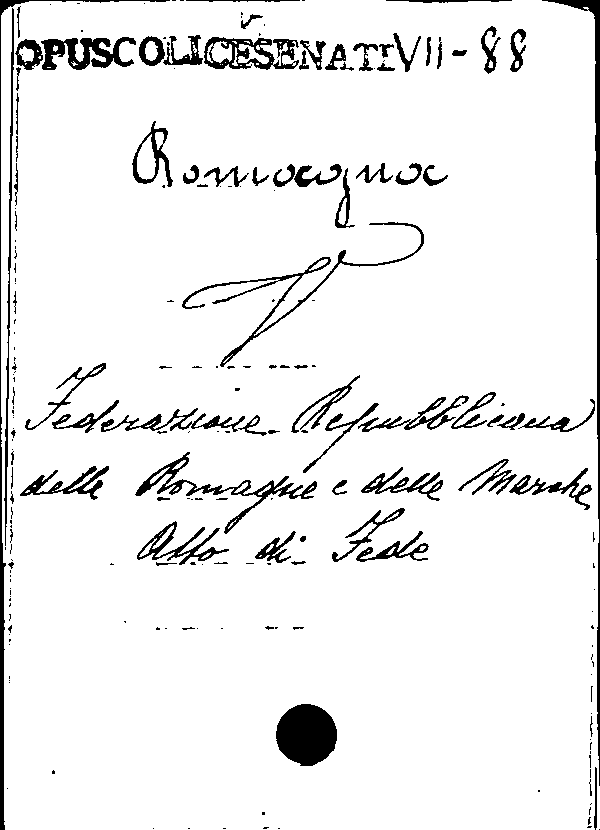 OPUSCOLI CESENATI VII - 88
Romagna
V
Federazione Repubblicana
delle Romagne e delle Marche
Atto di Fede